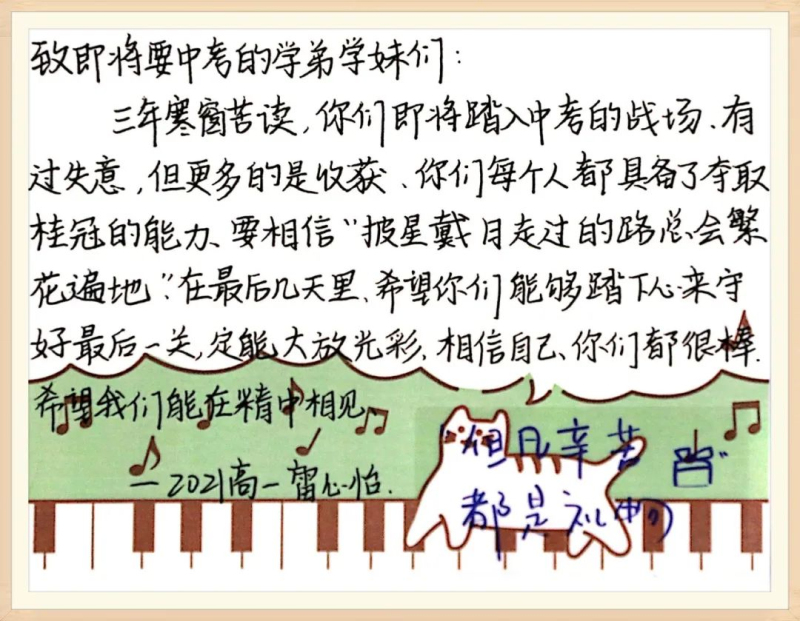 致即将要中考的学弟学妹们：
三年寒窗苦读，你们即将踏入中考的战场、有
过失意，但更多的是收获、你们每个人都具备了夺取
桂冠的能力、要相信“披星戴月走过的路总会繁
花遍地”.在最后几天里、希望你们能够踏下心来守
好最后一关，定能大放光彩，相信自己、你们都很棒.
希望我们能在精中相见、
—2021高一 雷心怡.
“但凡辛苦
都是礼物”